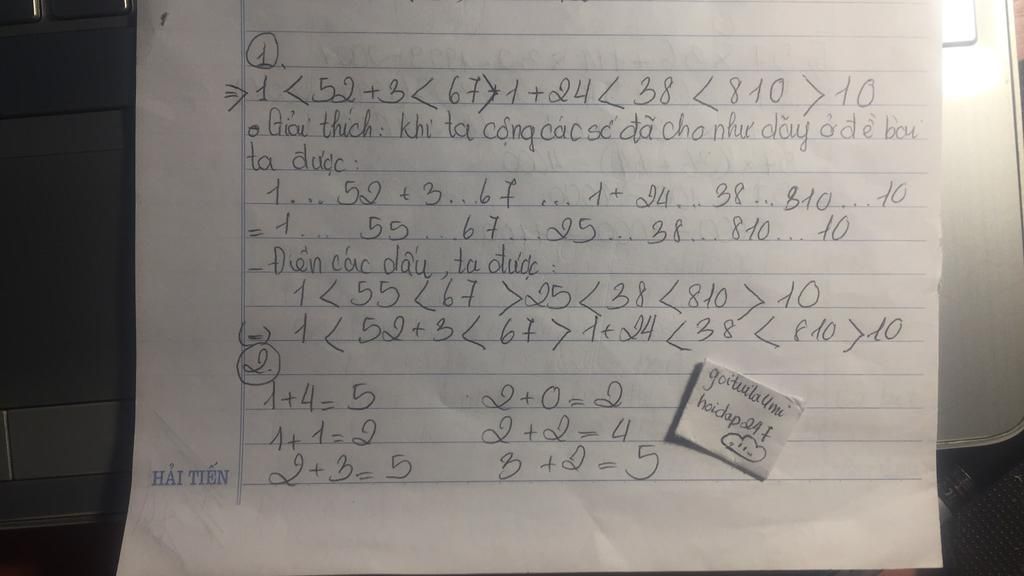 1.
=> 1 < 52 + 3 < 67 > 1 + 24 < 38 < 810 > 10
• Giải thích: khi ta cộng các số đã cho như dãy ở đề bài
ta được:
1 ... 52 + 3 ... 67 ... 1 + 24 ... 38 ... 810 ... 10
= 1 ... 55 ... 67 ... 25 ... 38 ... 810 ... 10
- Điền các dấu, ta được:
1 < 55 < 67 > 25 < 38 < 810 > 10
(=) 1 < 52 + 3 < 67 > 1 + 24 < 38 < 810 > 10
2.
1 + 4 = 5 2 + 0 = 2
1 + 1 = 2 2 + 2 = 4
2 + 3 = 5 3 + 2 = 5
hoidap247
HẢI TIẾN